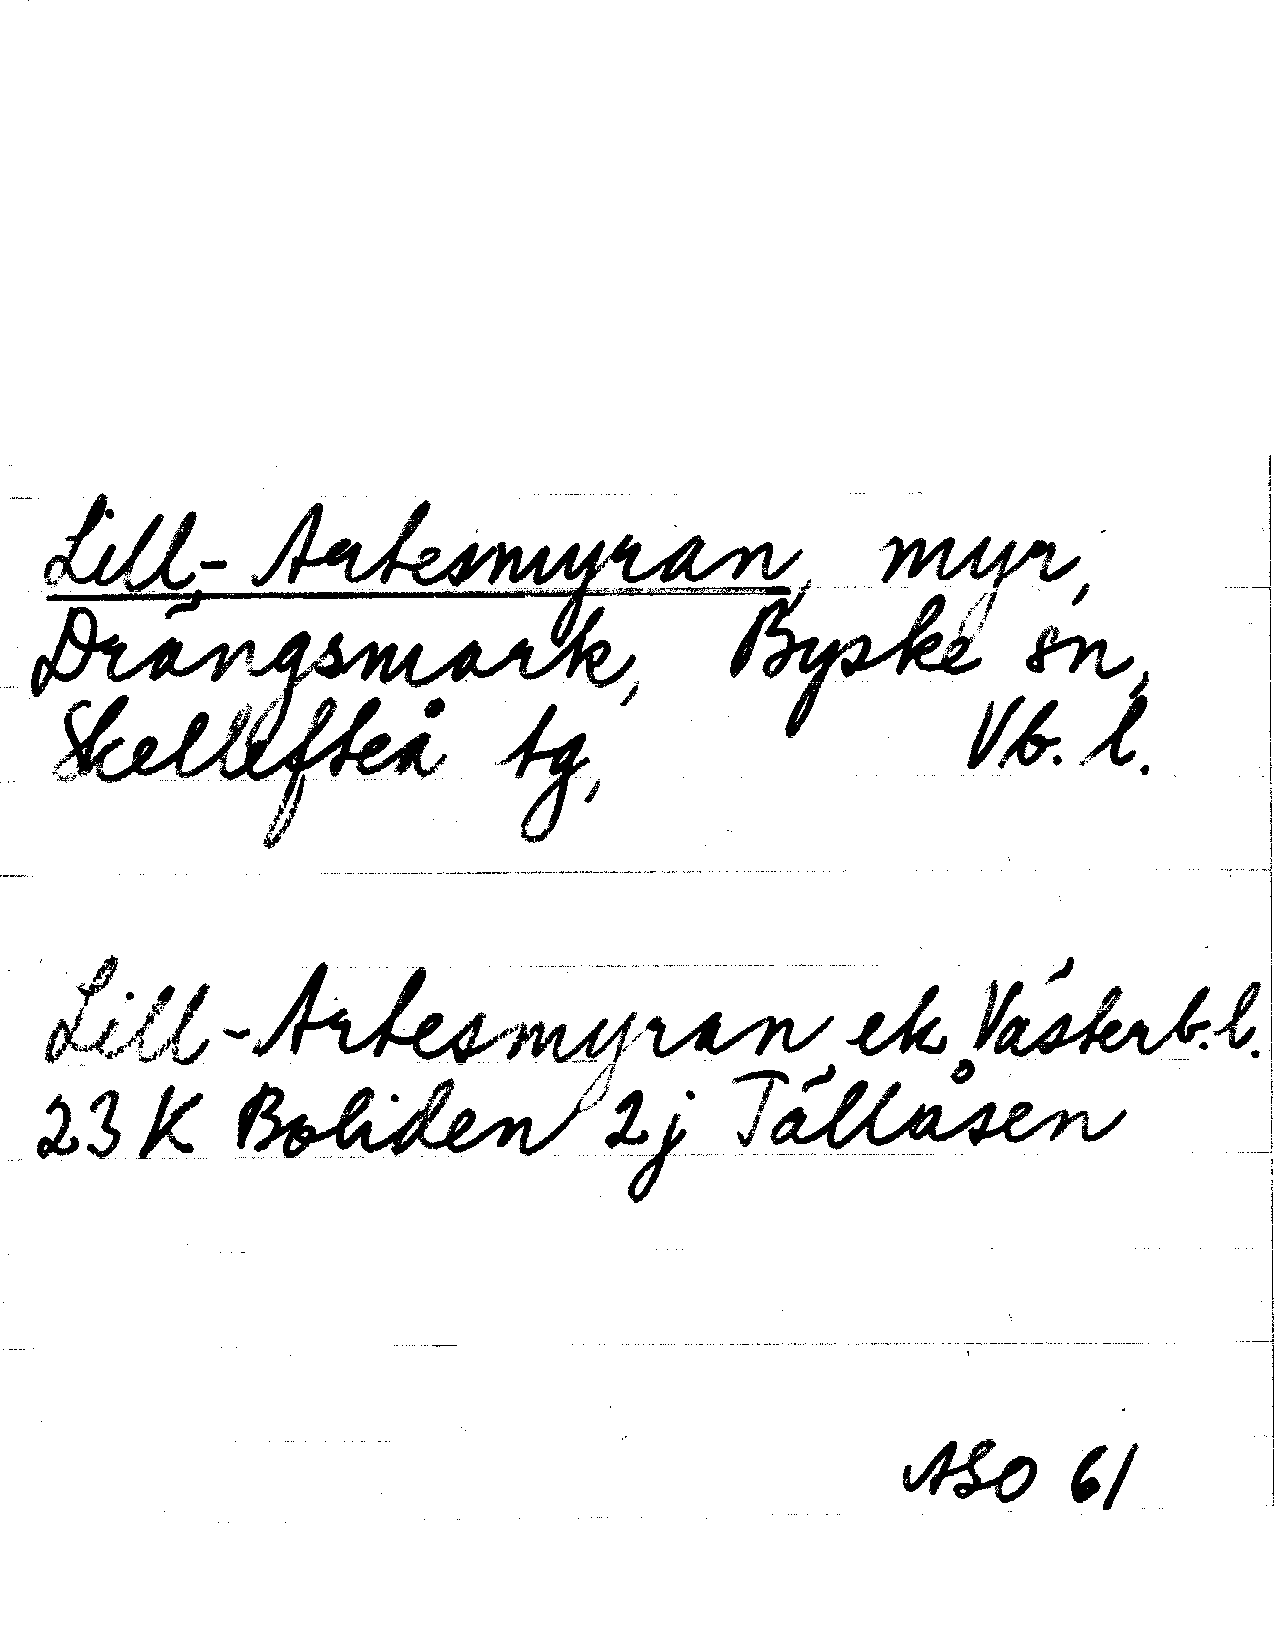 Lill-Artesmyran, myr,
Drängsmark, Byske sn,
Skellefteå tg, Vb. l.
Lill-Artesmyran ek Västerb.l.
23 K Boliden 2j Tällåsen
ASO 61